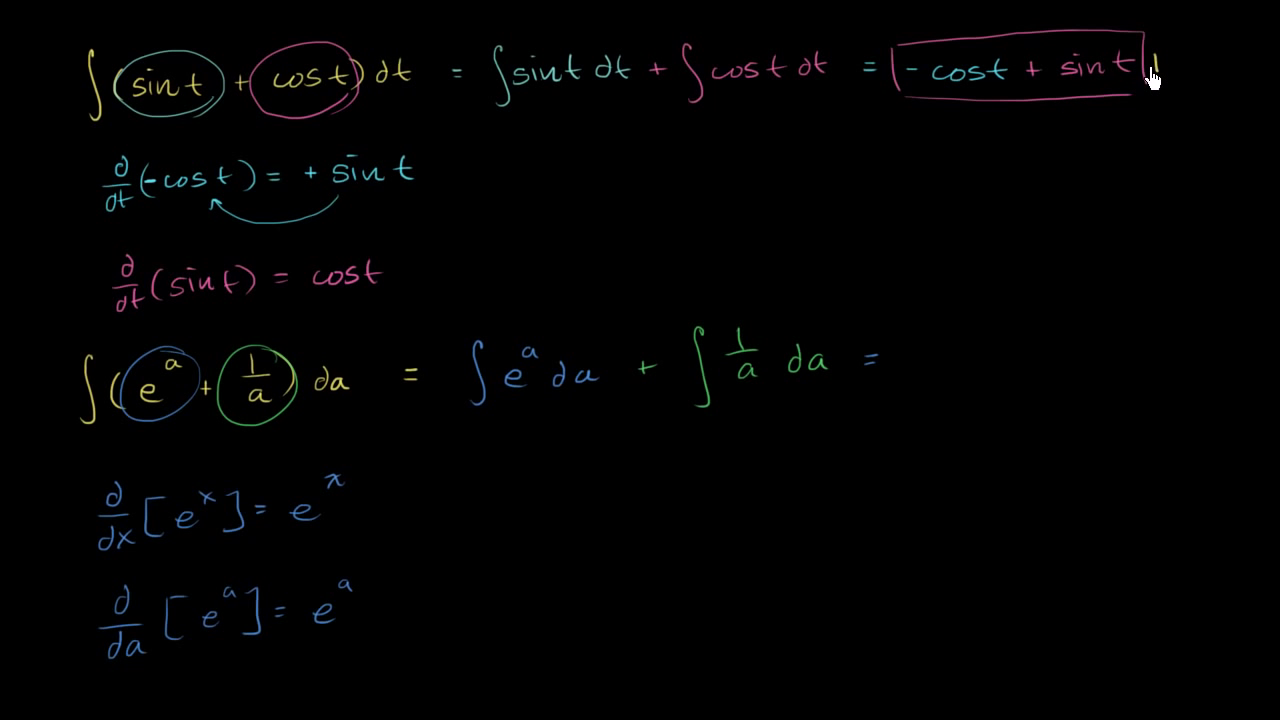 ∫(sin t + cos t) dt = ∫sin t dt + ∫cos t dt = - cos t + sin t
d/dt (-cos t) = + sin t
d/dt (sin t) = cos t
∫(e^a + 1/a) da = ∫e^a da + ∫ 1/a da =
d/dx [e^x] = e^x
d/da [e^a] = e^a